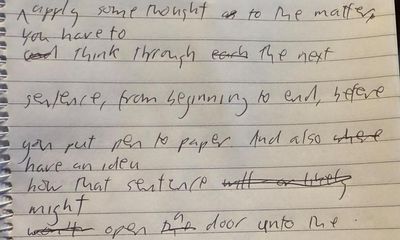 ^ apply some thought as to the matter,
you have to
and think through each the next
sentence, from beginning to end, before
you put pen to paper. And also where
have an idea
how that sentence will
might
open the a door unto the.